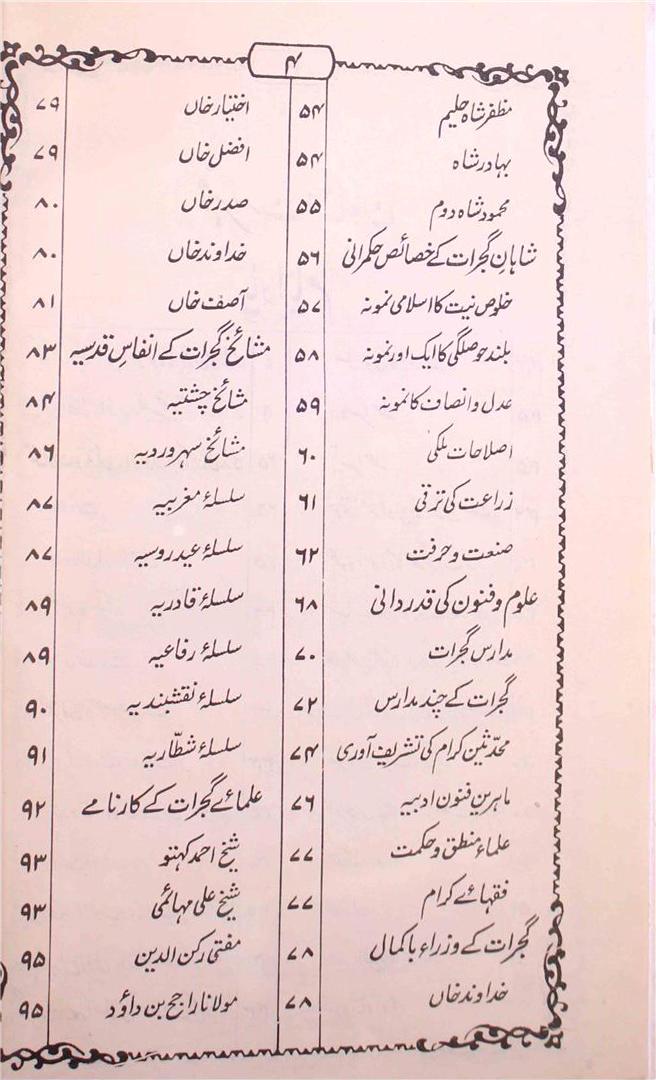 ۴
مظفر شاہ حلیم ۵۴
بہادر شاہ ۵۴
محمود شاہ دوم ۵۵
شاہان گجرات کے خصائص حکمرانی ۵۶
خلوص نیت کا اسلامی نمونہ ۵۷
بلند حوصلگی کا ایک اور نمونہ ۵۸
عدل و انصاف کا نمونہ ۵۹
اصلاحات ملکی ۶۰
زراعت کی ترقی ۶۱
صنعت و حرفت ۶۲
علوم و فنون کی قدردانی ۶۸
مدارس گجرات ۷۰
گجرات کے چند مدارس ۷۲
محدّثین کرام کی تشریف آوری ۷۴
ماہرین فنون ادبیہ ۷۶
علماء منطق و حکمت ۷۷
فقہائے کرام ۷۷
گجرات کے وزراء باکمال ۷۸
خداوند خاں ۷۸
اختیار خاں ۷۹
افضل خاں ۷۹
صدر خاں ۸۰
خداوند خاں ۸۰
آصف خاں ۸۱
مشائخ گجرات کے انفاسِ قدسیہ ۸۳
مشائخ چشتیہ ۸۴
مشائخ سہروردیہ ۸۶
سلسلۂ مغربیہ ۸۷
سلسلۂ عیدروسیہ ۸۷
سلسلۂ قادریہ ۸۹
سلسلۂ رفاعیہ ۸۹
سلسلۂ نقشبندیہ ۹۰
سلسلۂ شطّاریہ ۹۱
علمائے گجرات کے کارنامے ۹۲
شیخ احمد کہتو ۹۳
شیخ علی مہائمی ۹۳
مفتی رکن الدین ۹۵
مولانا راجح بن داؤد ۹۵